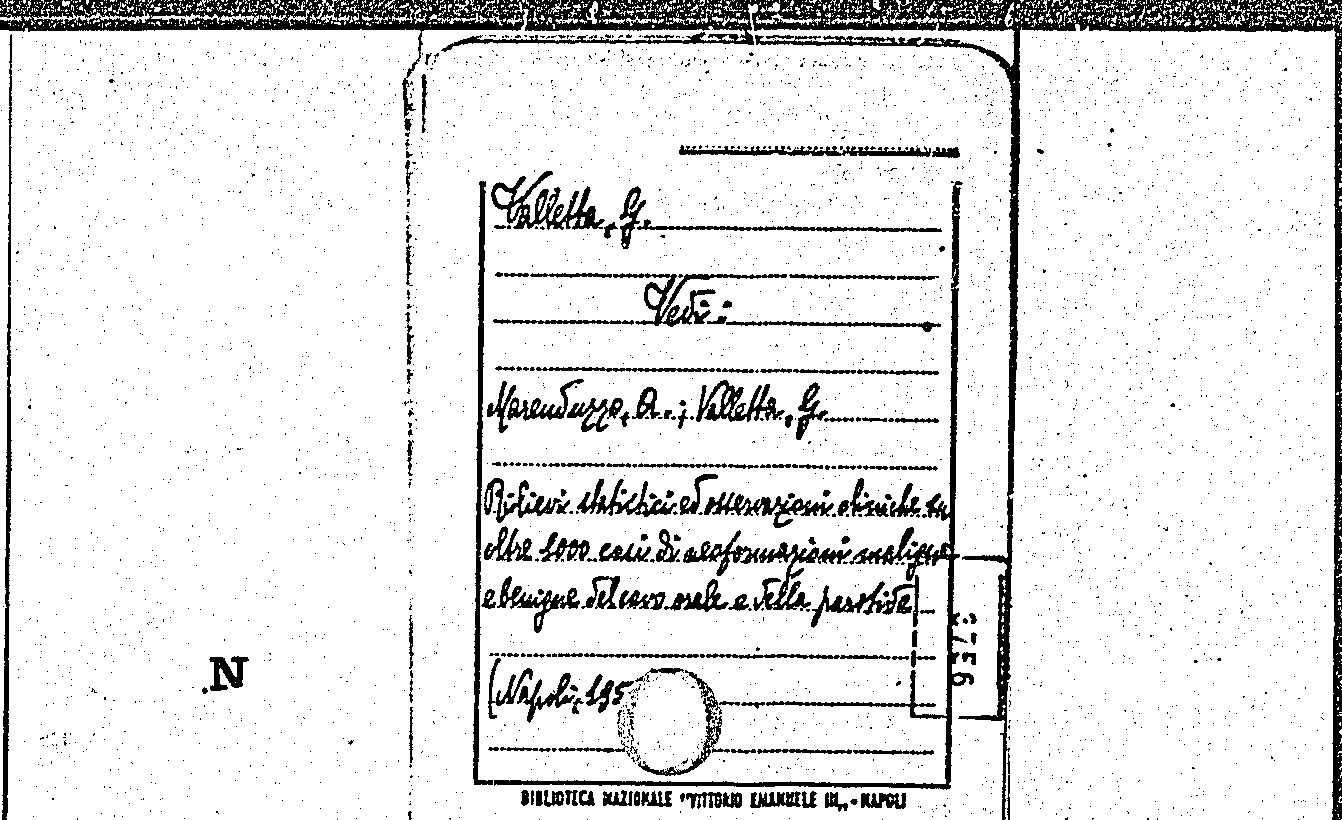 Valletta, G.
Vedi:
Marenduzzo, A.; Valletta, G.
Rilievi statistici ed osservazioni cliniche su
oltre 1000 casi di neoformazioni maligne
e benigne del cavo orale e della parotide
(Napoli, 195
N
BIBLIOTECA NAZIONALE "VITTORIO EMANUELE III„ - NAPOLI